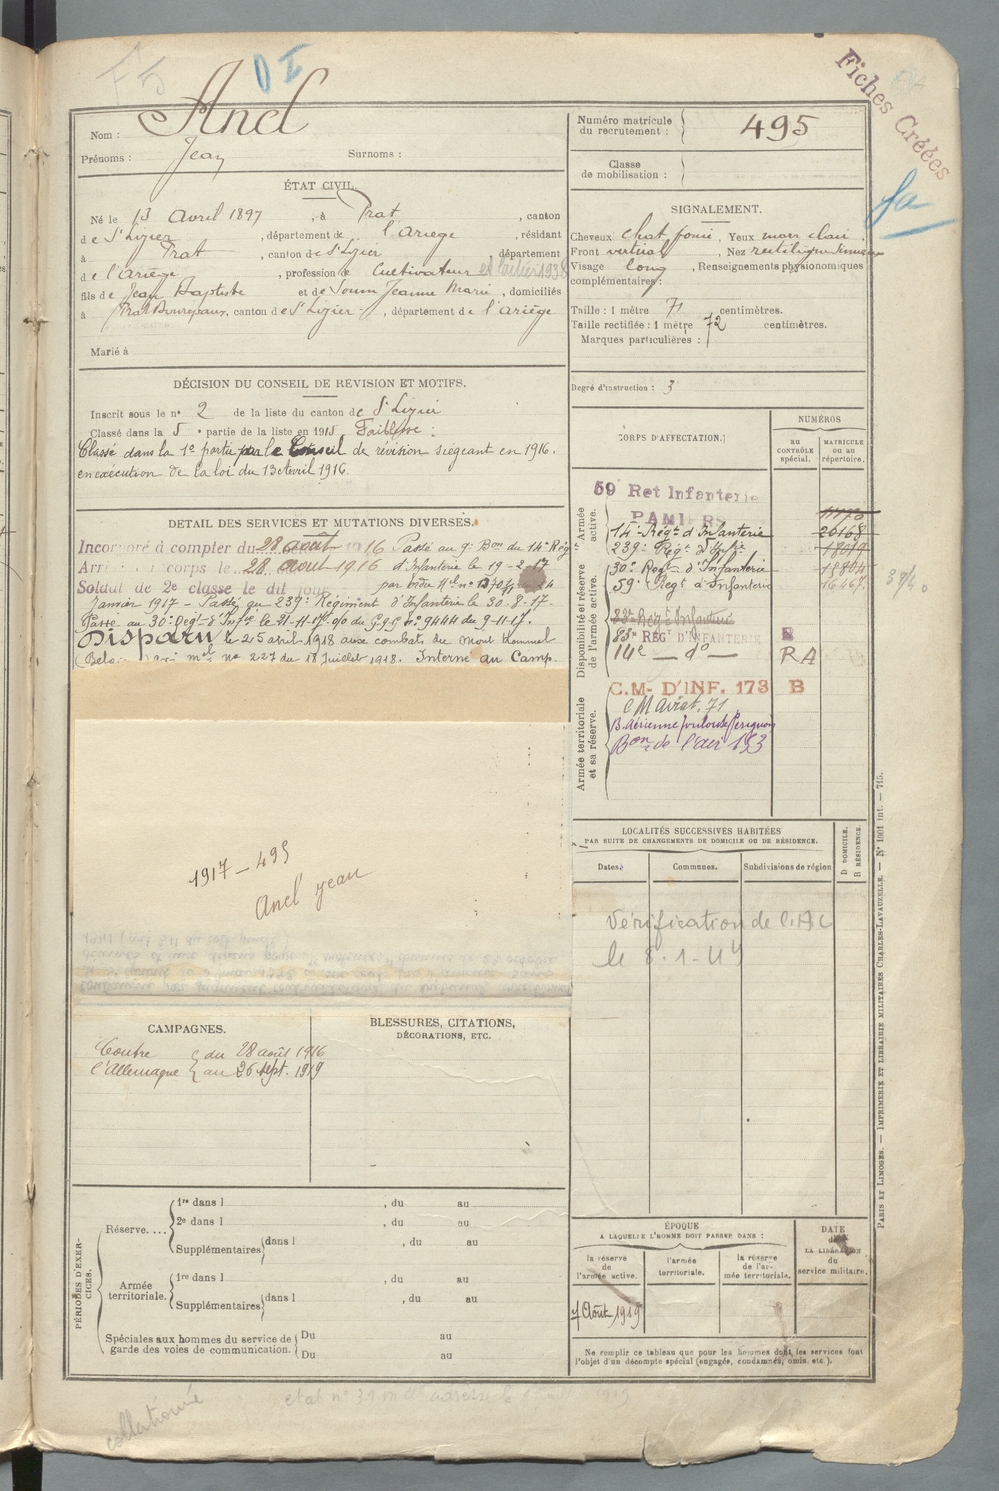 F5
D I
Fiches Créées
Nom : Anel
Prénoms : Jean Surnoms :
Numéro matricule du recrutement : 495
Classe de mobilisation :
ÉTAT CIVIL.
Né le 13 Avril 1897, à Prat, canton
de St Lizier, département de l'Ariège, résidant
à Prat, canton de St Lizier, département
de l'Ariège, profession de Cultivateur et laitier 1938
fils de Jean Baptiste et de Soum Jeanne Marie, domiciliés
à Prat Bonrepaux, canton de St Lizier, département de l'Ariège
Marié à
SIGNALEMENT.
Cheveux chat. foncé, Yeux marr. clair,
Front vertical, Nez rectiligne
Visage long, Renseignements physionomiques
complémentaires :
Taille : 1 mètre 71 centimètres.
Taille rectifiée : 1 mètre 72 centimètres.
Marques particulières :
Degré d'instruction : 3
DÉCISION DU CONSEIL DE REVISION ET MOTIFS.
Inscrit sous le n° 2 de la liste du canton de St Lizier
Classé dans la 5e partie de la liste en 1915 Faiblesse :
Classé dans la 1e partie par le Conseil de révision siégeant en 1916.
en exécution de la loi du 13 Avril 1916.
DETAIL DES SERVICES ET MUTATIONS DIVERSES.
Incorporé à compter du 28 août 1916 Passé au 9e Bon du 14e Rég
Arrivé au corps le 28 Août 1916 d'Infanterie le 19-2-17
Soldat de 2e classe le dit jour par ordre Mel n°
Janvier 1917 - Passé au 239e Régiment d'Infanterie le 30-8-17.
Passé au 30e Régt d'Infie le 21-11-17 o/o du G.Q.G n° 9444 du 9-11-17.
Disparu le 25 avril 1918 aux combats du Mont Kemmel
(Belg avis mel no 227 du 18 Juillet 1918. Interné au Camp
1917 - 495
Anel Jean
CORPS D'AFFECTATION.
NUMÉROS
AU CONTRÔLE spécial.
MATRICULE OU AU répertoire.
Armée active.
59 Ret Infanterie
PAMIERS
14e Régt d'Infanterie 20168
239e Régt d'Infie 18019
Disponibilité et réserve de l'armée active.
30e Regt d'Infanterie
59e Regt d'Infanterie 16467
83e Rég d'Infanterie
83e RÉGT D'INFANTERIE
14e — do — RA
Armée territoriale et sa réserve.
C.M- D'INF. 173 B
C M Aviat. 71
B. Aérienne Toulouse
Bon de l'air 153
37/4
LOCALITÉS SUCCESSIVES HABITÉES
PAR SUITE DE CHANGEMENTS DE DOMICILE OU DE RÉSIDENCE.
Dates. Communes. Subdivisions de région
D DOMICILE. R RÉSIDENCE.
Vérification de l'AC
le 8.1-44
CAMPAGNES.
Contre l'Allemagne } du 28 août 1916
au 26 sept. 1919
BLESSURES, CITATIONS,
DÉCORATIONS, ETC.
PÉRIODES D'EXERCICES.
Réserve....
1re dans l , du au
2e dans l , du au
Supplémentaires dans l , du au
Armée territoriale.
1re dans l , du au
Supplémentaires dans l , du au
Spéciales aux hommes du service de garde des voies de communication.
Du au
Du au
ÉPOQUE
A LAQUELLE L'HOMME DOIT PASSER DANS :
la réserve de l'armée active.
l'armée territoriale.
la réserve de l'armée territoriale.
DATE de LA LIBÉRATION du service militaire.
Août 1919
Ne remplir ce tableau que pour les hommes dont les services font
l'objet d'un décompte spécial (engagés, condamnés, omis, etc.).
PARIS ET LIMOGES. — IMPRIMERIE ET LIBRAIRIE MILITAIRES CHARLES-LAVAUZELLE. — N° 1901 int. — 715.
collationné